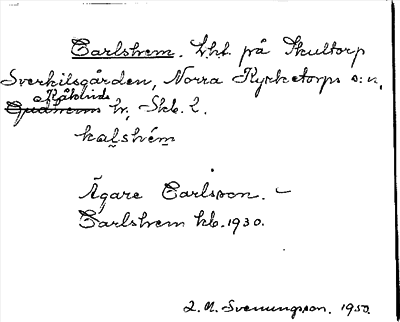 Carlshem. Lht. på Skultorp
Sverkilsgården, Norra Kyrketorps s:n,
Kåkinds
Gudhems hr, Skb. l.
kaḷshém
Ägare Carlsson. –
Carlshem kb. 1930.
Svenungsson. 1950.